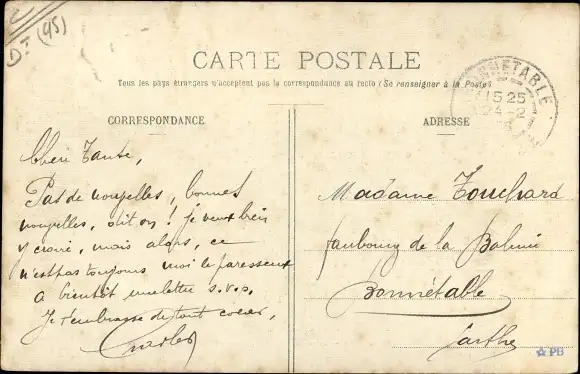 Dt (95)
CARTE POSTALE
Tous les pays étrangers n'acceptent pas la correspondance au recto (Se renseigner à la Poste)
BONNÉTABLE
15 25
24-2
CORRESPONDANCE
ADRESSE
Chère Tante,
Pas de nouvelles, bonnes
nouvelles, dit on! je veux bien
y croire, mais alors, ce
n'est pas toujours moi le paresseux
a bientôt une lettre s.v.p.
Je t'embrasse de tout coeur,
Madame Touchard
faubourg de la
Bonnétable
Sarthe
PB